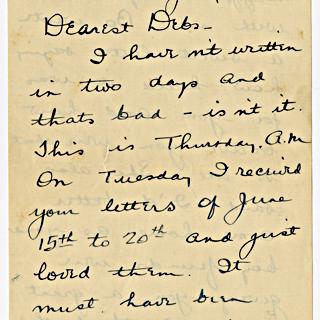 Dearest Debs -
I haven't written
in two days and
thats bad - isn't it.
This is Thursday, A.M
On Tuesday I received
your letters of June
15th to 20th and just
loved them. It
must have been